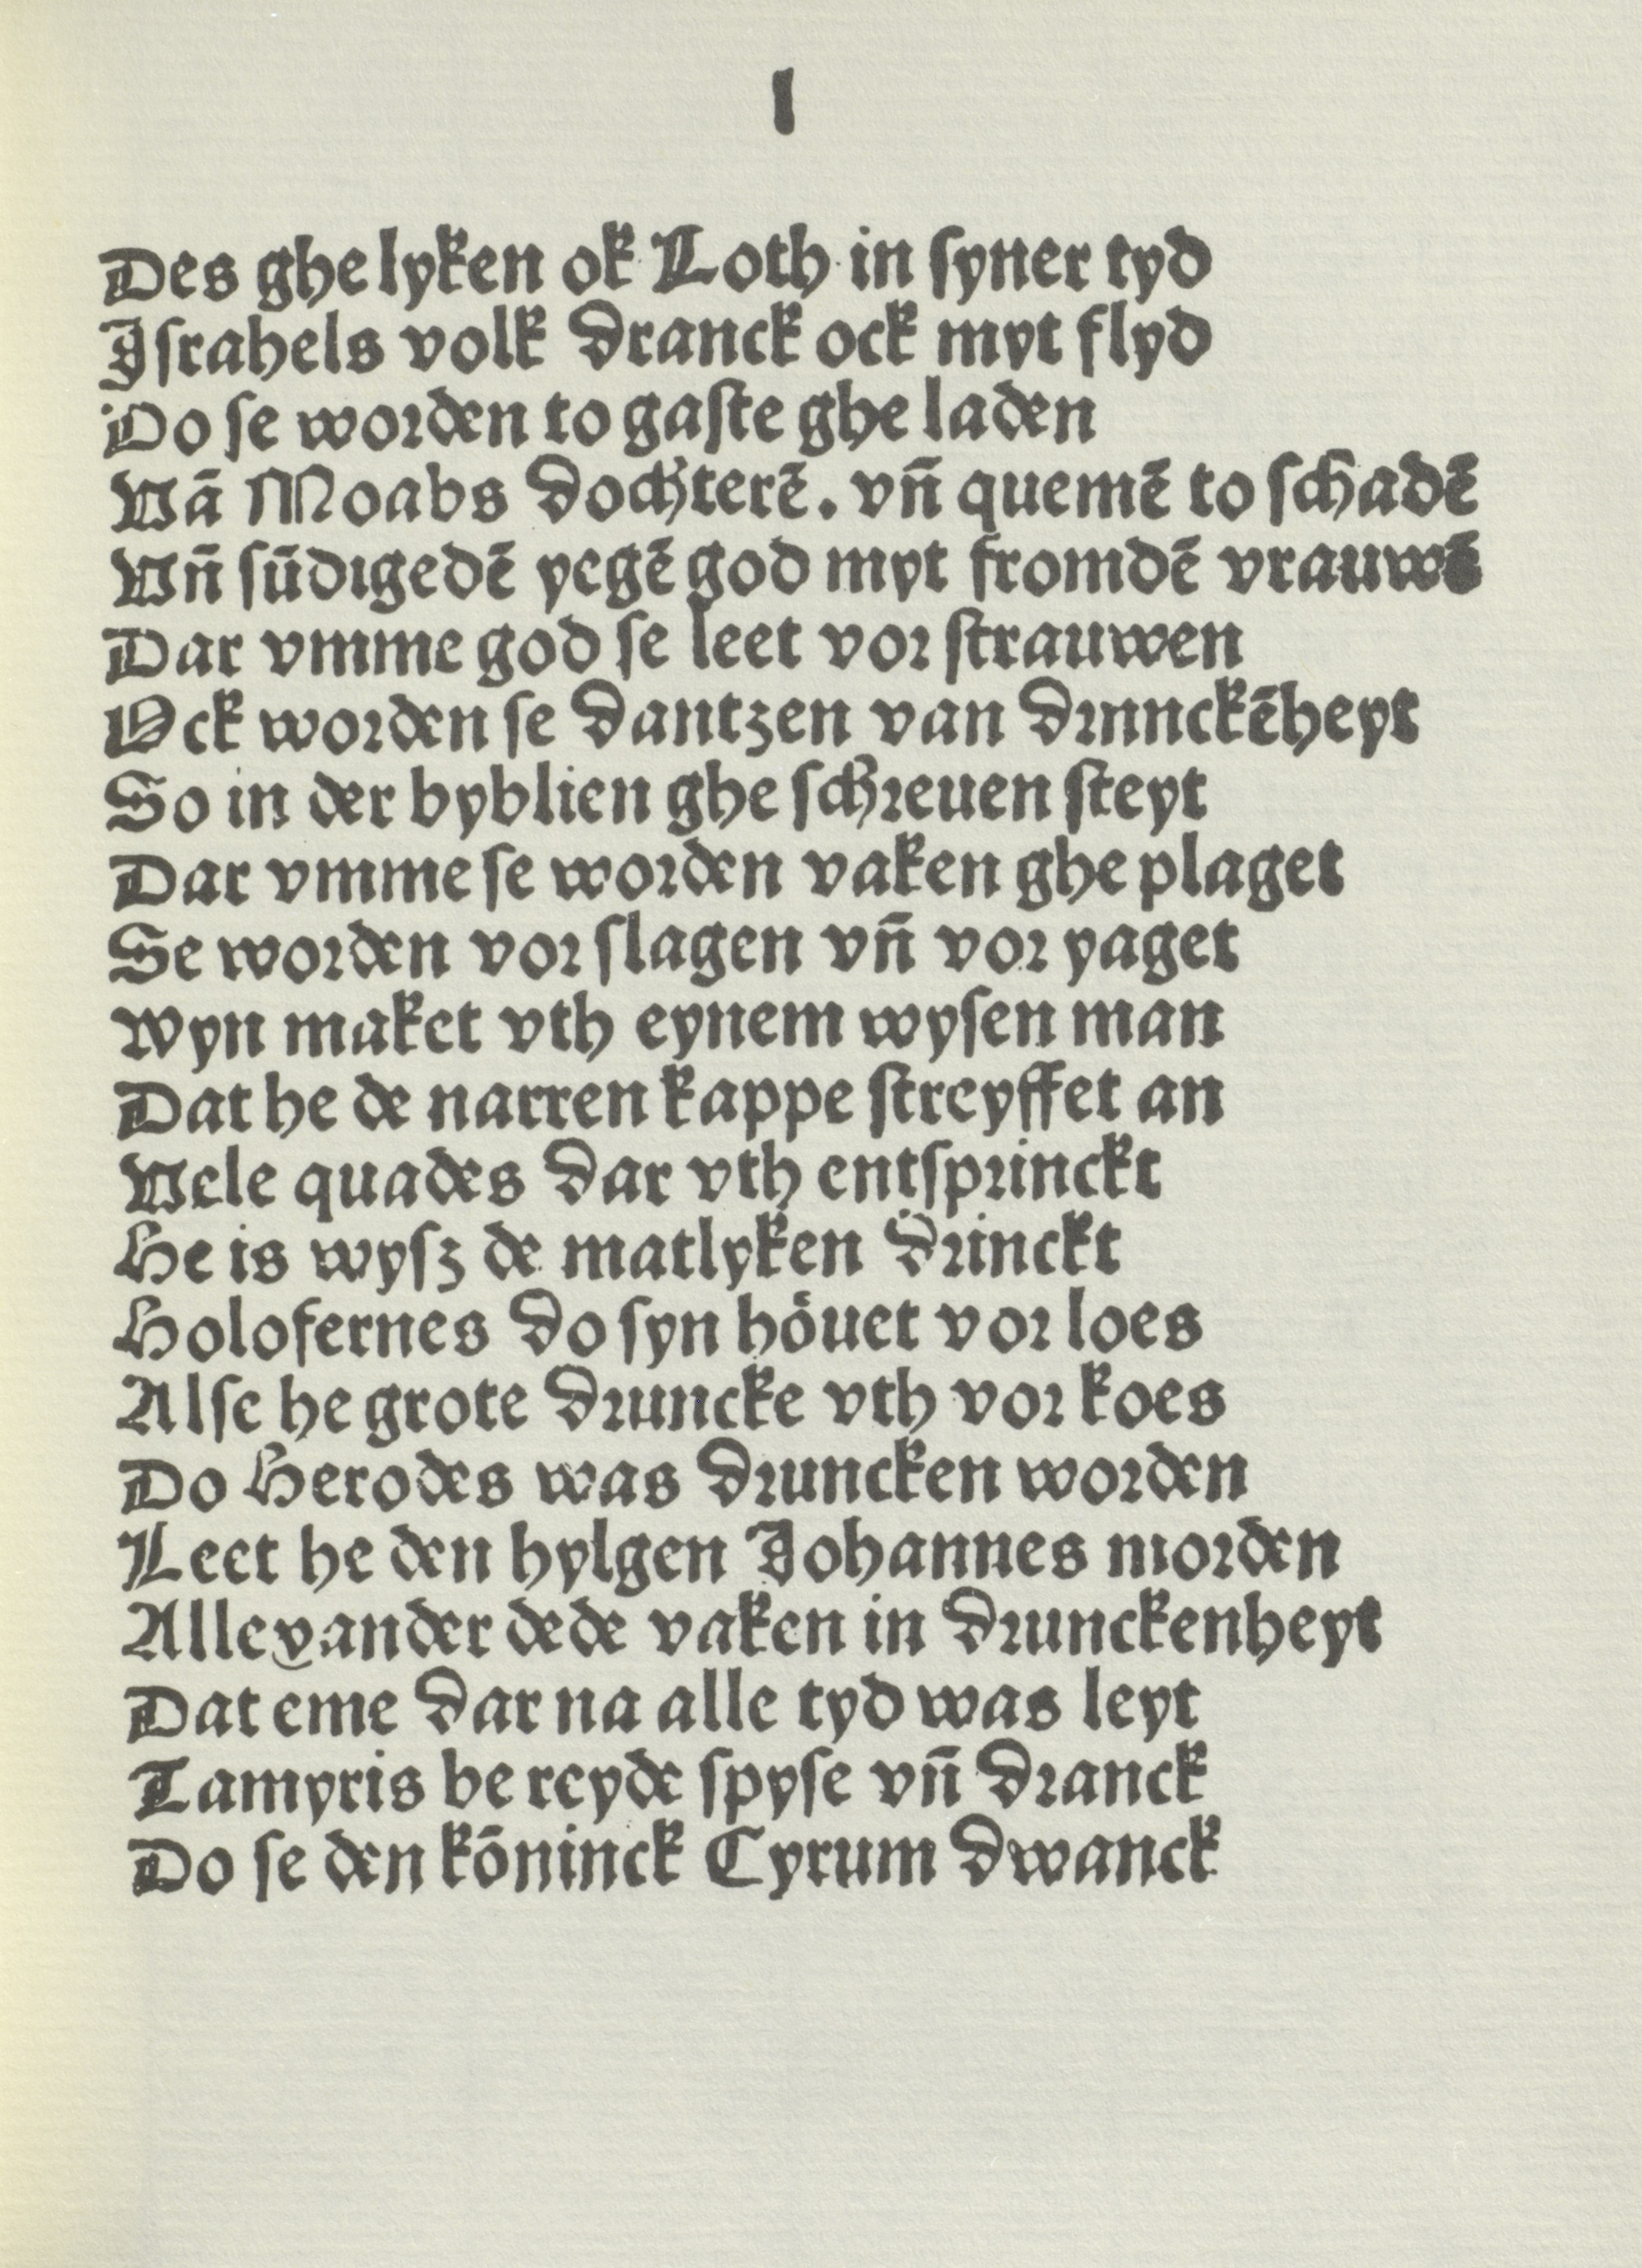 I
Des ghe lyken ok Loth in ſyner tyd
Jſrahels volk dranck ock myt flyd
Do ſe worden to gaſte ghe laden
Vā Moabs dochterē. vn̄ quemē to ſchadē
Vn̄ ſūdigedē yegē god myt fromdē vrauwē
Dar vmme god ſe leet vor ſtrauwen
Ock worden ſe dantzen van drnnckēheyt
So in der byblien ghe ſchreuen ſteyt
Dar vmme ſe worden vaken ghe plaget
Se worden vor ſlagen vn̄ vor yaget
Wyn maket vth eynem wyſen man
Dat he de narren kappe ſtreyffet an
Vele quades dar vth entſprinckt
He is wyſz de matlyken drinckt
Holofernes do ſyn höuet vor loes
Alſe he grote druncke vth vor koes
Do Herodes was druncken worden
Leet he den hylgen Johannes morden
Allexander dede vaken in drunckenheyt
Dat eme dar na alle tyd was leyt
Tamyris be reyde ſpyſe vn̄ dranck
Do ſe den kōninck Cyrum dwanck